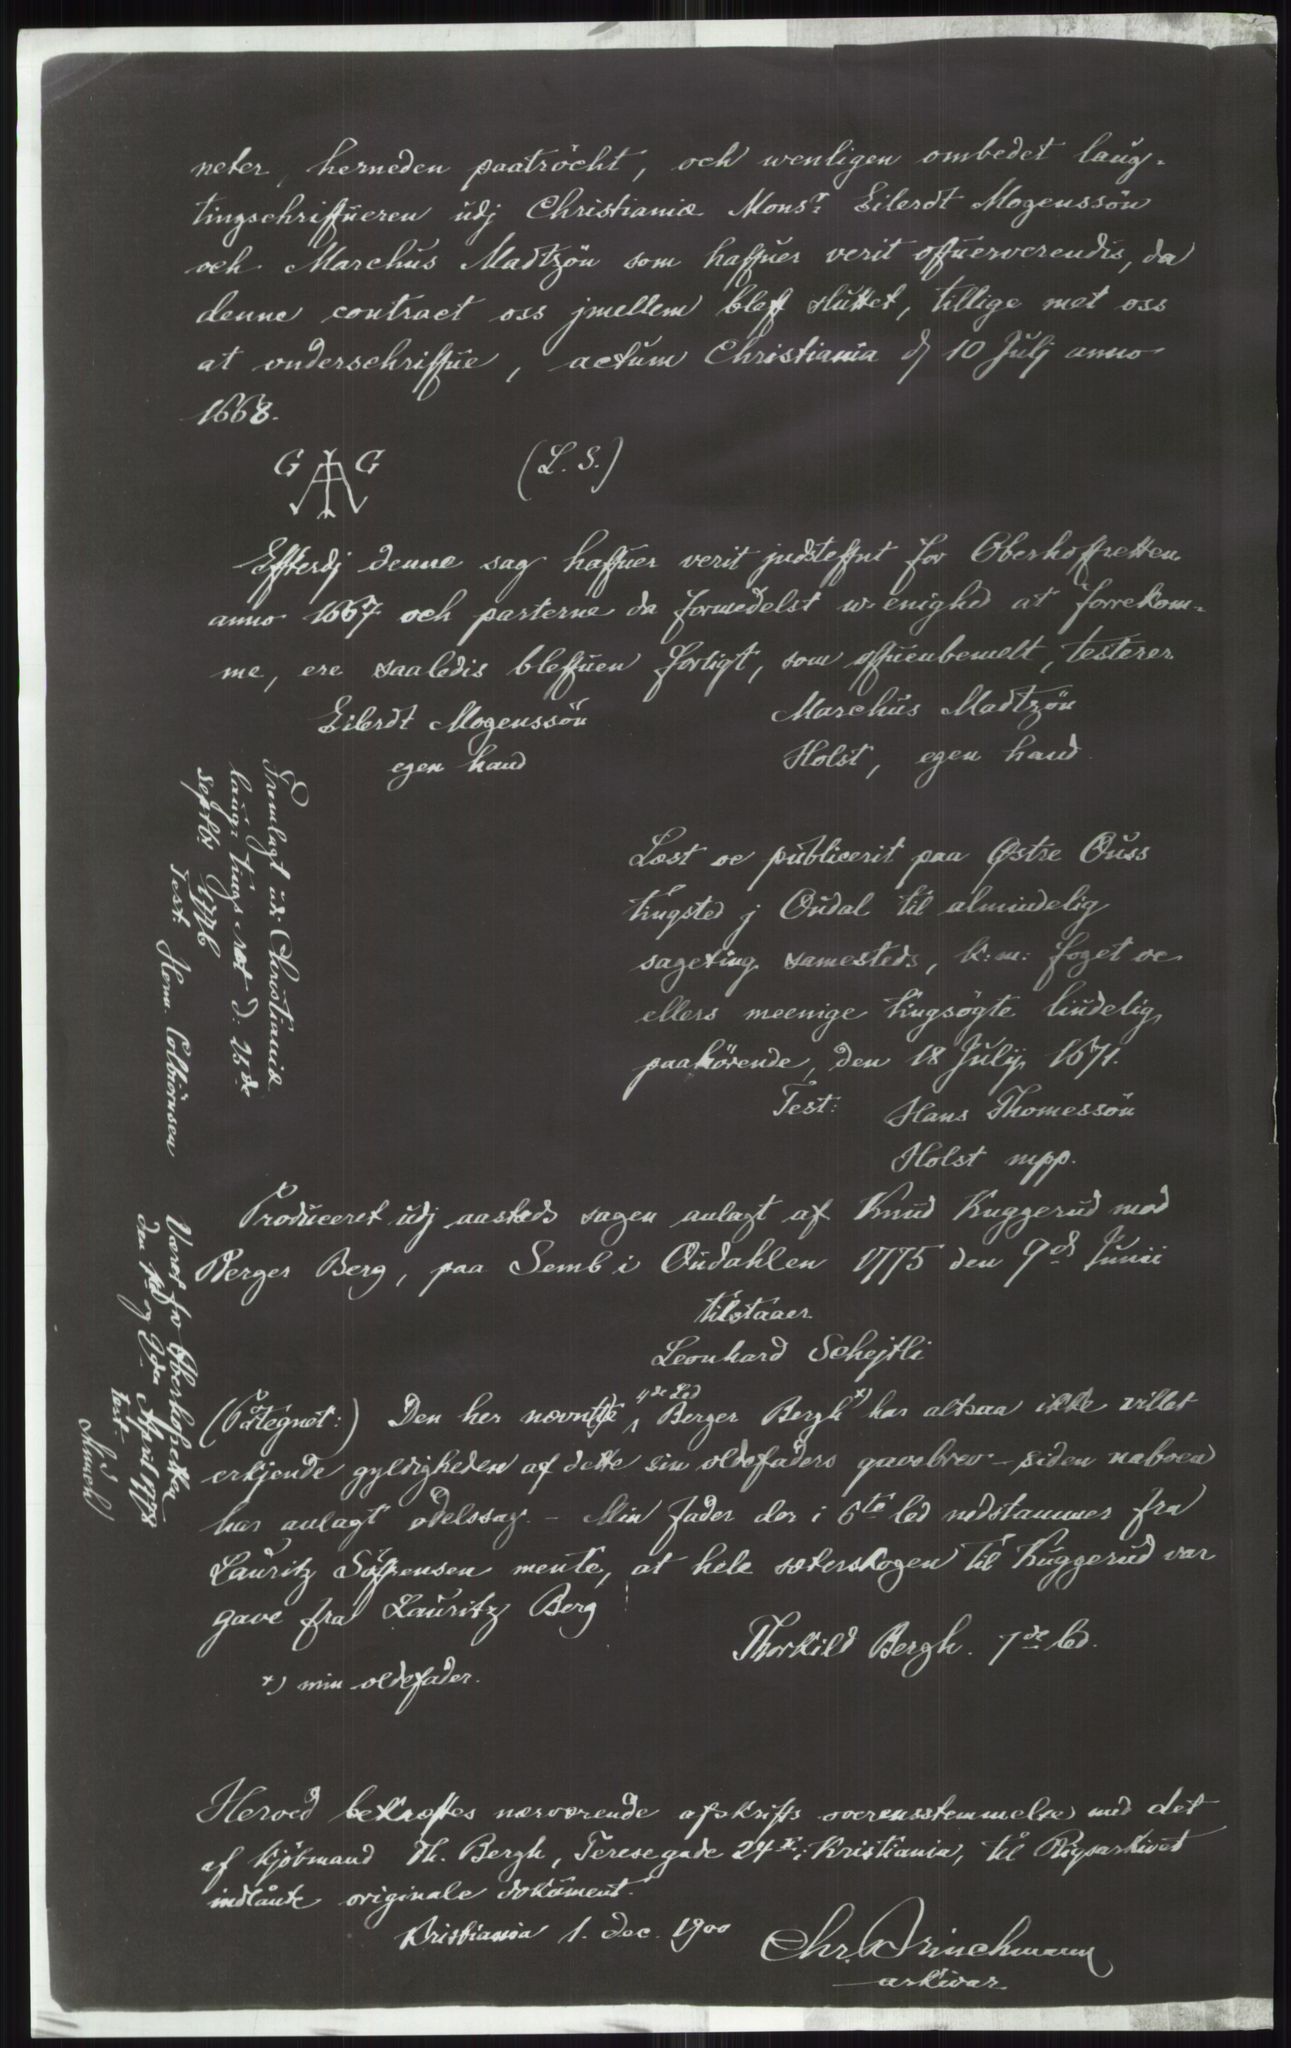 neter, herneden paatröcht, och wenligen ombedet laug-
tingschriffueren udj Christianiæ Monsr: Eilerdt Mogenssön
och Marchus Madtzön som haffuer verit offuerverendis, da
denne contract oss jmellem bleff sluttet, tillige met oss
at vnderschriffue, actum Christiania d 10 Julj anno
1668.
G G
(L. S.)
Efterdj denne sag haffuer verit jndsteffnt for Oberhoffretten
anno 1667 och parterne da formedelst w-enighed at forrekom-
me, ere saaledis bleffuen forligt, som offuenbemelt, testerer
Eilerdt Mogenssön
egen hand
Marchus Madtzön
Holst, egen hand.
Fremlagt udi Christianiæ
laug-tings ret d: 25de
Septbr 1776
Test: Herm. Colbiörnsen
Læst oc publicerit paa Østre Ouss
tingsted j Oudal til almindelig
sageting samesteds, k: m: foget oc
ellers meenige tingsögte liudelig
paahörende, den 18 Julij 1671.
Test: Hans Thomessön
Holst mpp.
Produceret udj aasteds sagen anlagt af Knud Kuggerud mod
Berger Berg, paa Semb i Oudahlen 1775 den 9de Junii
tilstaaer
Leonhard Schejtli
Været for Oberhofretten
den og den April 1778
test:
Munch
(Påtegnet:) Den her nævnte 4de Led Berger Bergh x) har altsaa ikke villet
erkjende gyldigheden af dette sin oldefaders gavebrev - siden naboen
har anlagt odelssag. - Min fader der i 6te led nedstammer fra
Lauritz Söfrensen mente, at hele sæterskogen til Kuggerud var
gave fra Lauritz Berg!
Thorkild Bergh. 7de led.
x) min oldefader.
Herved bekræftes nærværende afskrifts overensstemmelse med det
af kjöbmand Th. Bergh, Teresegade 24 Kristiania, til Rigsarkivet
indlånte originale dokument.
Kristiania 1. dec. 1900
Chr. Brinchmann
arkivar